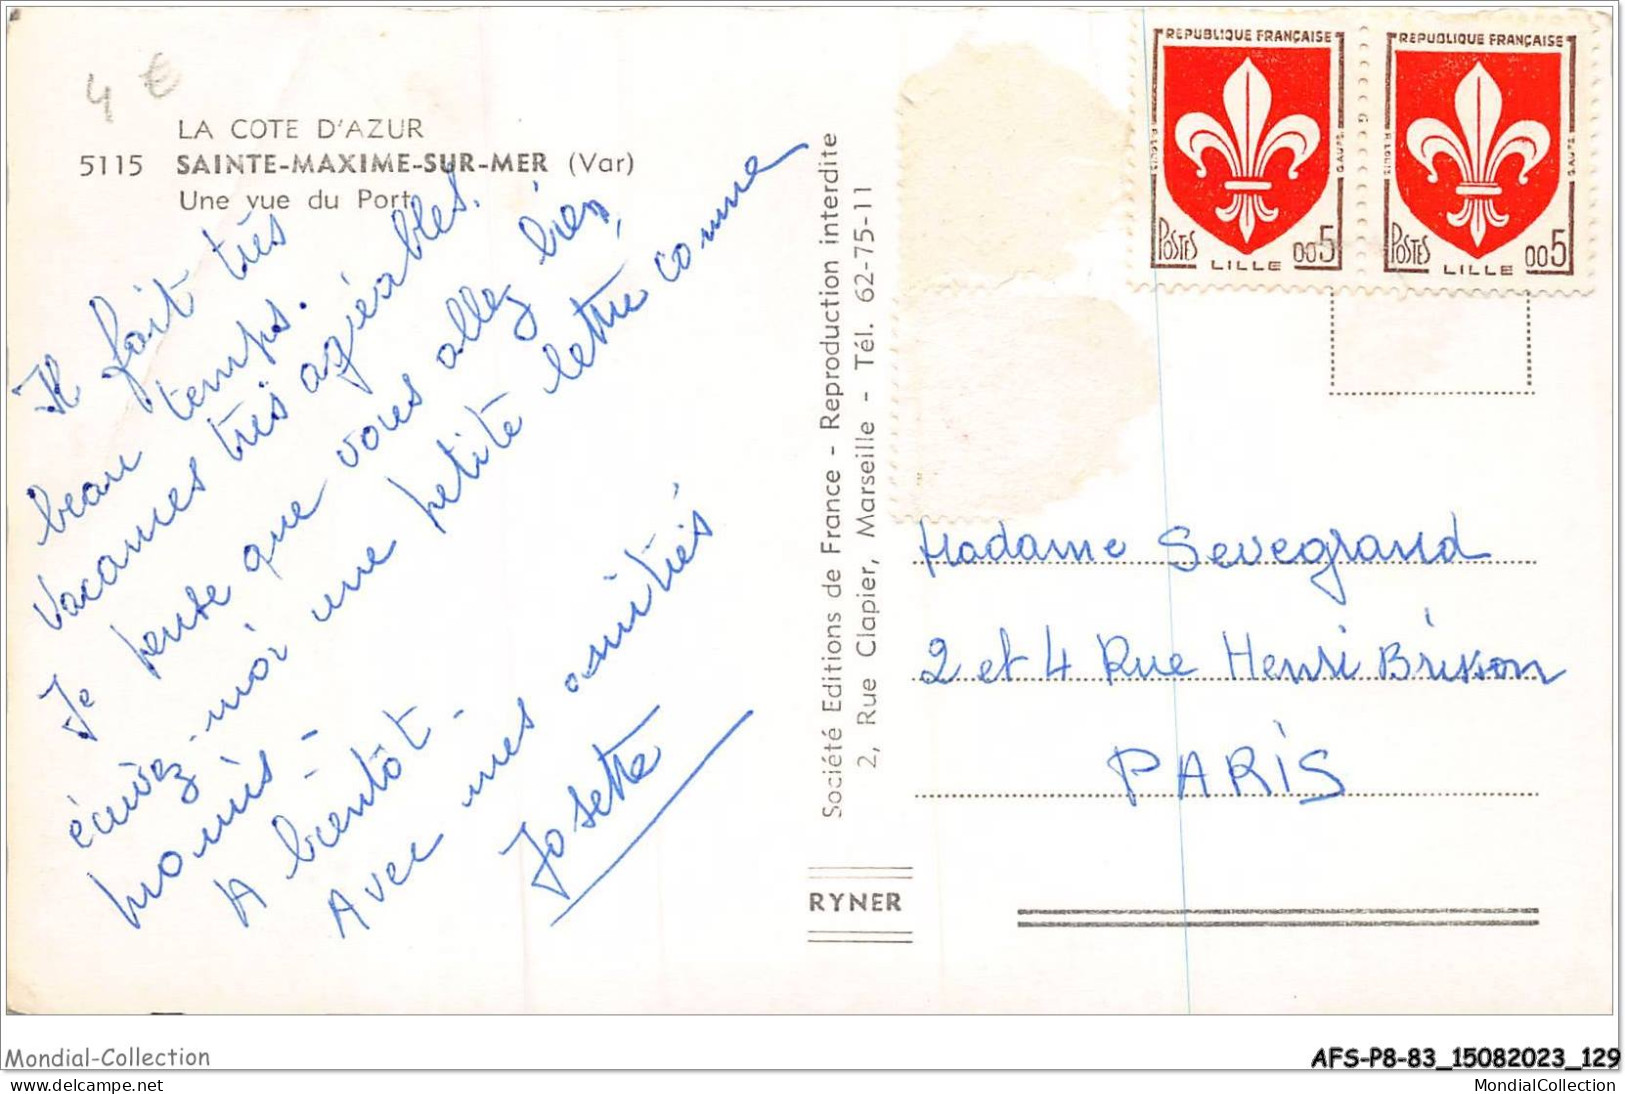 4 €
LA COTE D'AZUR
5115 SAINTE-MAXIME-SUR-MER (Var)
Une vue du Port
Il fait très
beau temps.
Vacances très agréables.
Je pense que vous allez bien,
écrivez-moi une petite lettre comme
promis -
A bientôt -
Avec mes amitiés
Josette
Société Editions de France - Reproduction interdite
2, Rue Clapier, Marseille - Tél. 62-75-11
RYNER
REPUBLIQUE FRANÇAISE
POSTES
LILLE
005
REPUBLIQUE FRANÇAISE
POSTES
LILLE
005
Madame Sevegrand
2 et 4 Rue Henri Brisson
PARIS
Mondial-Collection
AFS-P8-83_15082023_129
test@test.com
MondialCollection